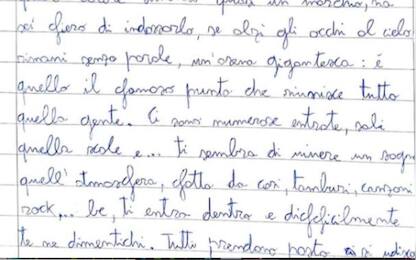 un moschino, ma
sei fiero di indossarlo, se alzi gli occhi al cielo
rimani senza parole, un'arena gigantesca: è
quello il famoso punto che riunisce tutto
quella gente. Ci sono numerose entrate, sali
quella scale e... ti sembra di vivere un sogno
quell'atmosfera, fatta da cori, tamburi, canzoni
rock... be, ti entra dentro e difficilmente
te ne dimentichi. Tutti prendono posto si